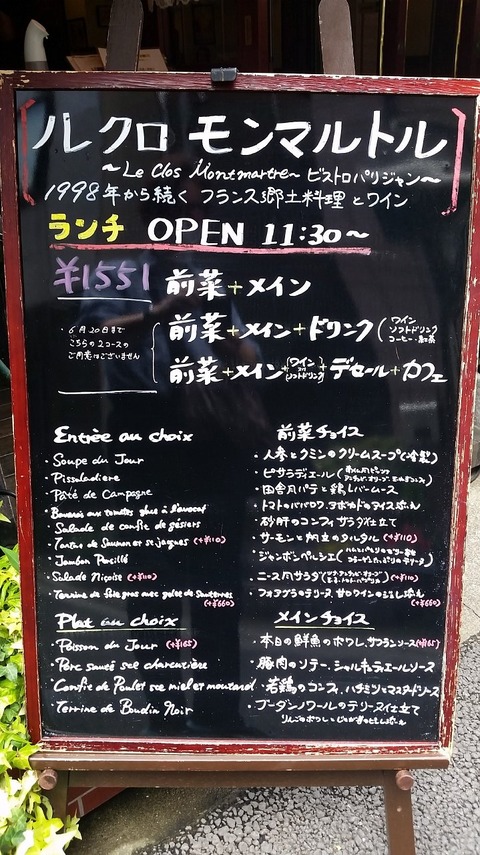 ル クロ モンマルトル
～Le Clos Montmartre～ ビストロパリジャン～
1998年から続く フランス郷土料理とワイン
ランチ OPEN 11:30～
¥1551 前菜+メイン
・6月20日まで
こちらの2コースの
ご用意はございません
前菜+メイン+ドリンク(ワイン ソフトドリンク コーヒー・紅茶)
前菜+メイン+(ワイン or ソフトドリンク)+デセール+カフェ
Entrée au choix
・Soupe du Jour
・Pissaladière
・Pâté de Campagne
・Bavarois aux tomates glace à l'avocat
・Salade de confit de gésiers
・Tartar de Saumon et st jaques (+¥110)
・Jambon Persillé
・Salade Niçoise (+¥110)
・Terrine de foie gras avec gelée de Sauternes
(+¥660)
前菜チョイス
・人参とクミンのクリームスープ(冷製)
・ピサラディエール
・田舎風パテと鶏レバームース
・トマトのババロワ、アボカドのアイス添え
・砂肝のコンフィ サラダ仕立て
・サーモンと帆立のタルタル (+¥110)
・ジャンボンペルシエ
・ニース風サラダ (+¥110)
・フォアグラのテリーヌ 甘口ワインのジュレ添え
(+¥660)
Plat au choix
・Poisson du Jour (+¥165)
・Porc sauté sce charcutière
・Confit de Poulet sce miel et moutard
・Terrine de Boudin Noir
メインチョイス
・本日の鮮魚のポワレ、サフランソース(+¥165)
・豚肉のソテー、シャルキュティエールソース
・若鶏のコンフィ、ハチミツとマスタードソース
・ブーダンノワールのテリーヌ仕立て
りんごのポワレとじゃがいものピュレ添え